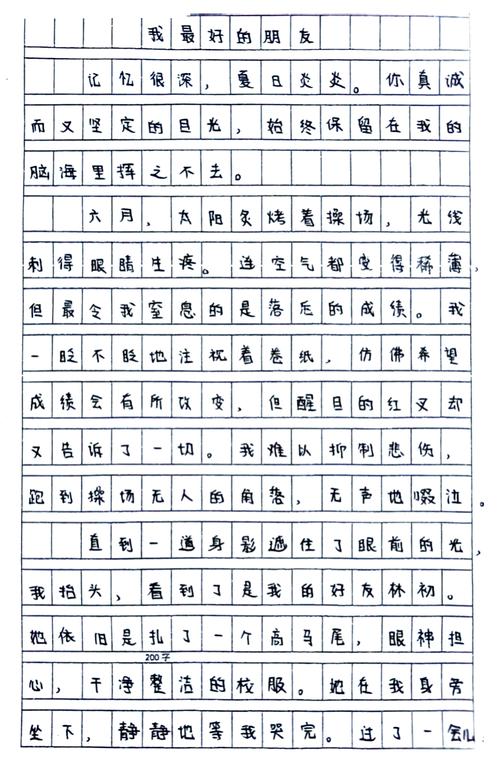 我最好的朋友
记忆很深，夏日炎炎。你真诚
而又坚定的目光，始终保留在我的
脑海里挥之不去。
六月，太阳炙烤着操场，光线
刺得眼睛生疼。连空气都变得稀薄，
但最令我窒息的是落后的成绩。我
一眨不眨地注视着卷纸，仿佛希望
成绩会有所改变，但醒目的红叉却
又告诉了一切。我难以抑制悲伤，
跑到操场无人的角落，无声地啜泣。
直到一道身影遮住了眼前的光，
我抬头，看到了是我的好友林初。
她依旧是扎了一个高马尾，眼神担
200字
心，干净整洁的校服。她在我身旁
坐下，静静地等我哭完。过了一会儿